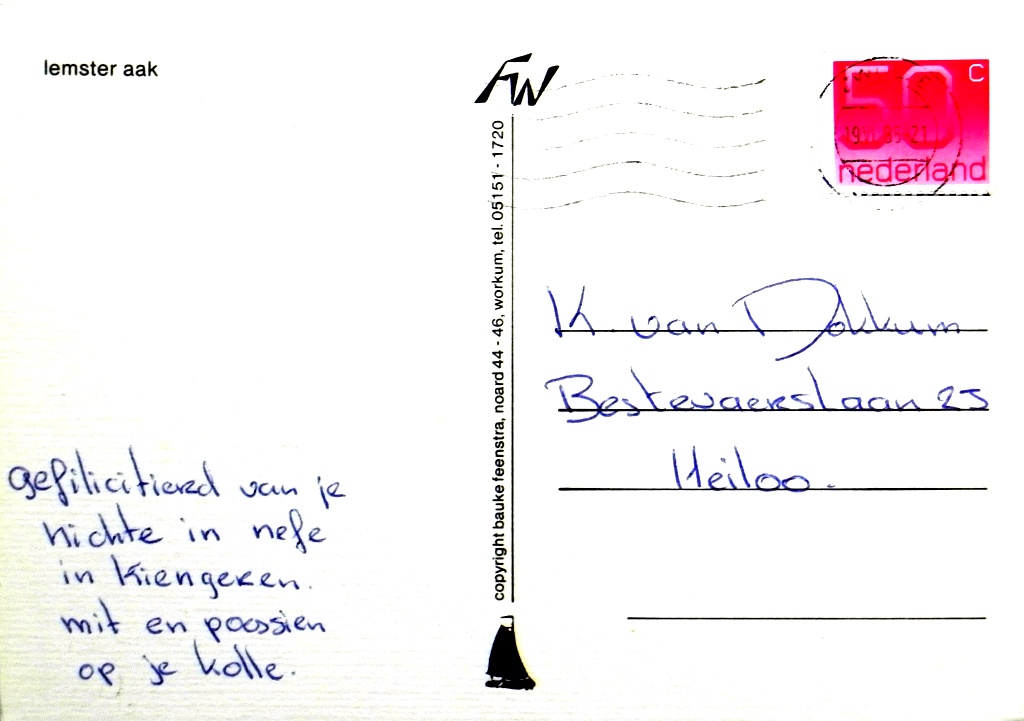 lemster aak
FW
50 C
nederland
copyright bauke feenstra, noard 44 - 46, workum, tel. 05151 - 1720
K. van Dokkum
Bestevaerslaan 25
Heiloo.
gefilicitierd van je
nichte in nefe
in kiengeren.
mit en poossien
op je kolle.